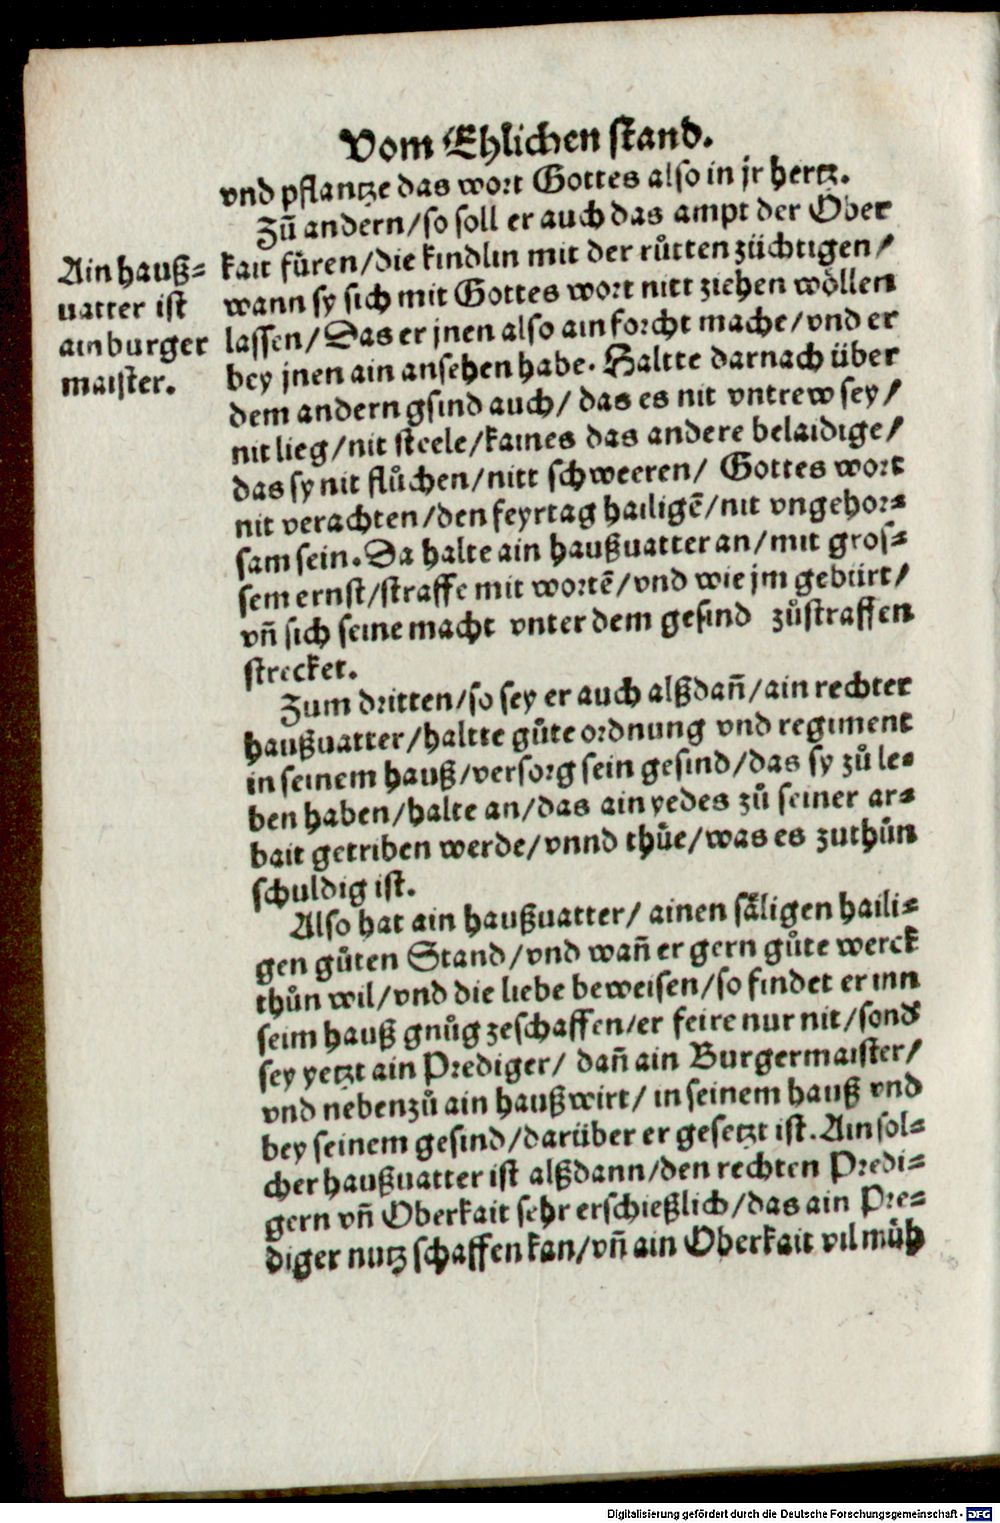 Vom Ehlichen stand.
vnd pflantze das wort Gottes also in jr hertz.
Zů andern/so soll er auch das ampt der Ober
kait füren/die kindlin mit der růtten züchtigen/
wann sy sich mit Gottes wort nitt ziehen wöllen
lassen/Das er jnen also ain forcht mache/vnd er
bey jnen ain ansehen habe. Haltte darnach über
dem andern gsind auch/ das es nit vntrew sey/
nit lieg/nit steele/kaines das andere belaidige/
das sy nit flůchen/nitt schweeren/ Gottes wort
nit verachten/den feyrtag hailigẽ/nit vngehor⸗
sam sein. Da halte ain haußuatter an/mit gros⸗
sem ernst/straffe mit wortẽ/vnd wie jm gebürt/
vñ sich seine macht vnter dem gesind zůstraffen
strecket.
Zum dritten/so sey er auch alßdañ/ain rechter
haußuatter/haltte gůte ordnung vnd regiment
in seinem hauß/versorg sein gesind/das sy zů le⸗
ben haben/halte an/das ain yedes zů seiner ar⸗
bait getriben werde/vnnd thůe/was es zuthůn
schuldig ist.
Also hat ain haußuatter/ ainen säligen haili⸗
gen gůten Stand/vnd wañ er gern gůte werck
thůn wil/vnd die liebe beweisen/so findet er inn
seim hauß gnůg zeschaffen/er feire nur nit/sond̕
sey yetzt ain Prediger/ dañ ain Burgermaister/
vnd nebenzů ain haußwirt/ in seinem hauß vnd
bey seinem gesind/darüber er gesetzt ist. Ain sol⸗
cher haußuatter ist alßdann/den rechten Predi⸗
gern vñ Oberkait sehr erschießlich/das ain Pre⸗
diger nutz schaffen kan/vñ ain Oberkait vil müh
Ain hauß⸗
uatter ist
ain burger
maister.
Digitalisierung gefördert durch die Deutsche Forschungsgemeinschaft - DFG